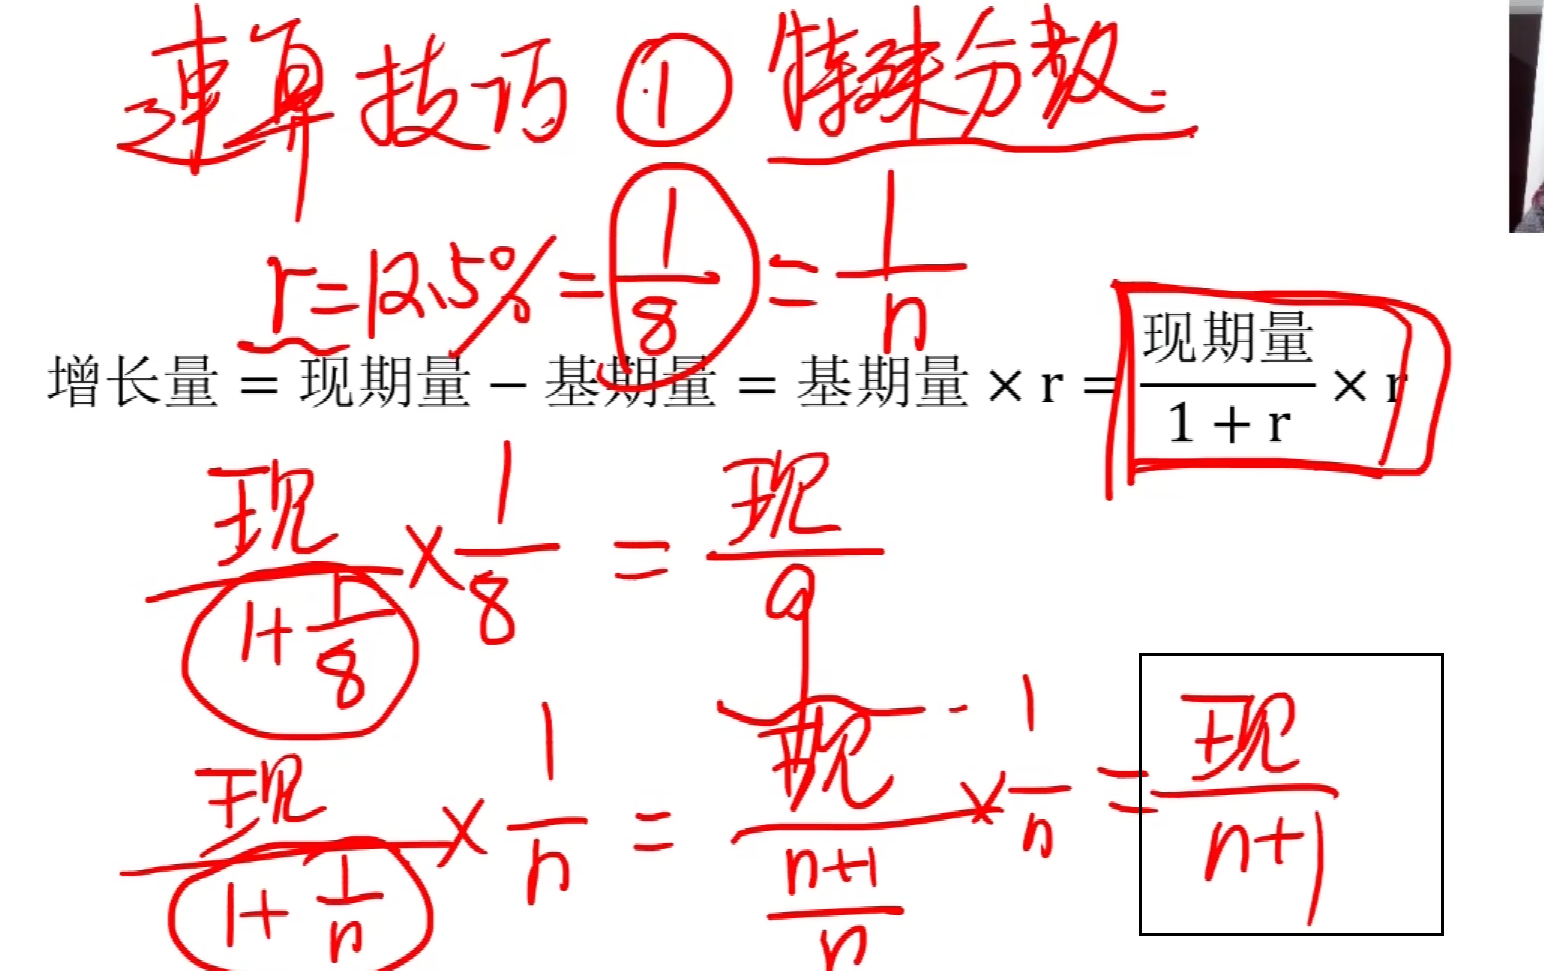 速算技巧 ① 特殊分数
r=12.5% = 1/8 = 1/n
增长量 = 现期量 − 基期量 = 基期量 × r = 现期量/(1 + r) × r
现/(1+1/8) × 1/8 = 现/9
现/(1+1/n) × 1/n = 现/((n+1)/n) × 1/n = 现/(n+1)